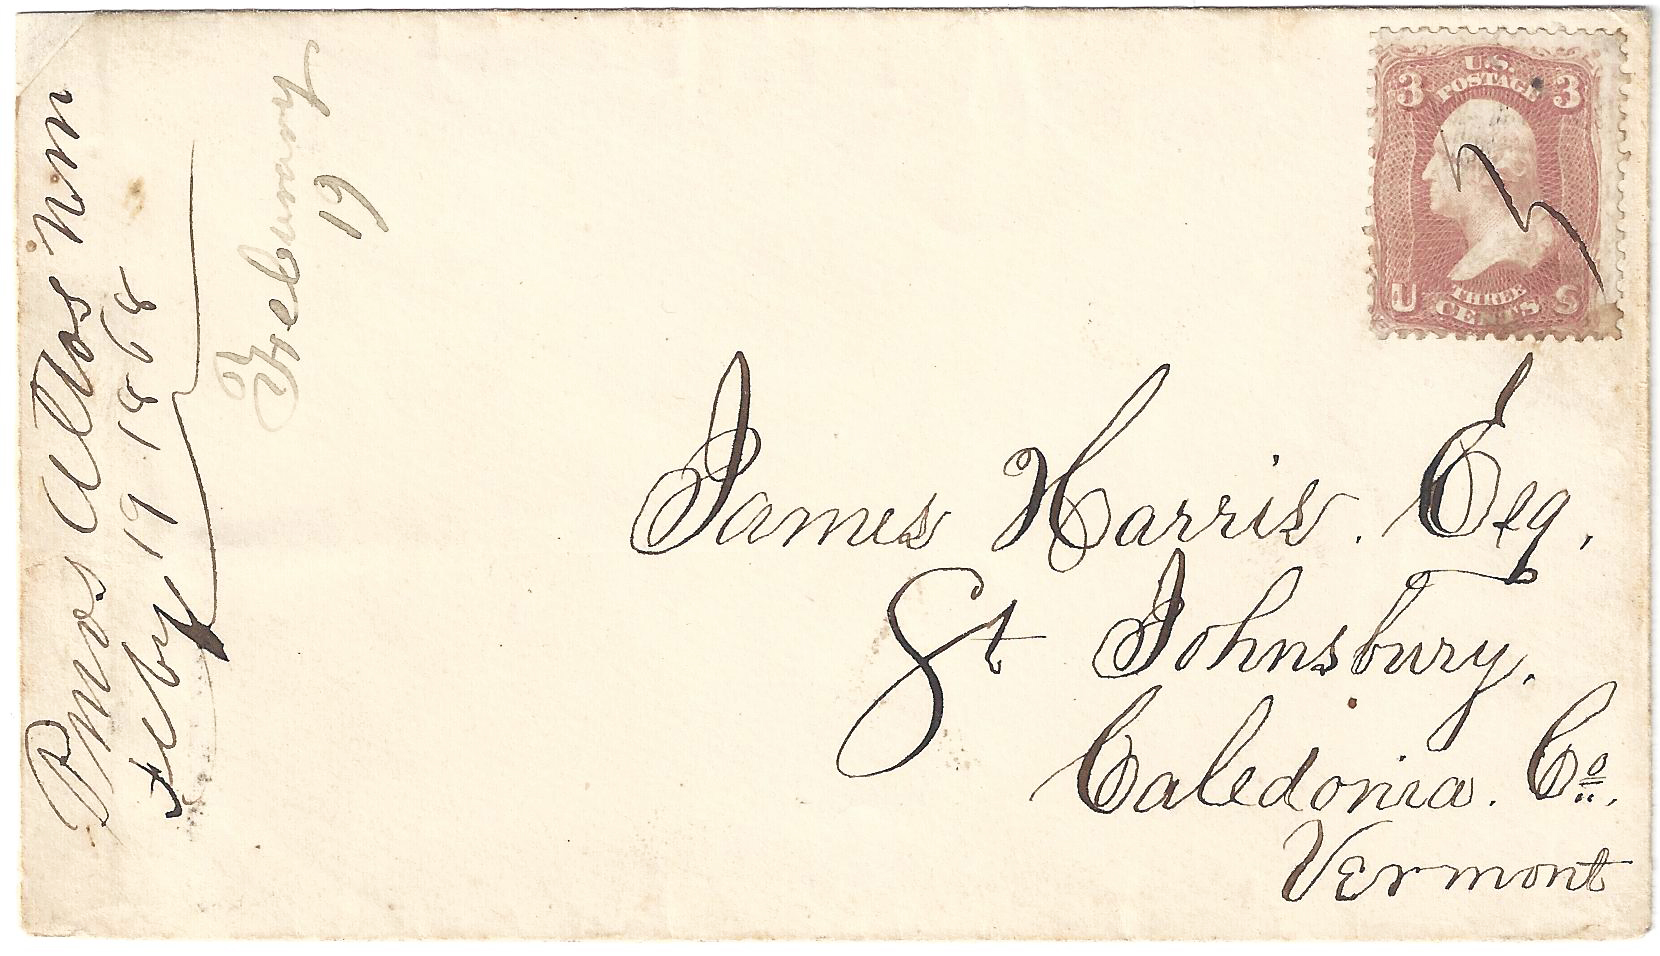 Pinos Altos N M
Feby 19 1868
February
19
U.S.
POSTAGE
3 3
U THREE S
CENTS
James Harris. Esq.
St Johnsbury.
Caledonia. Co.
Vermont